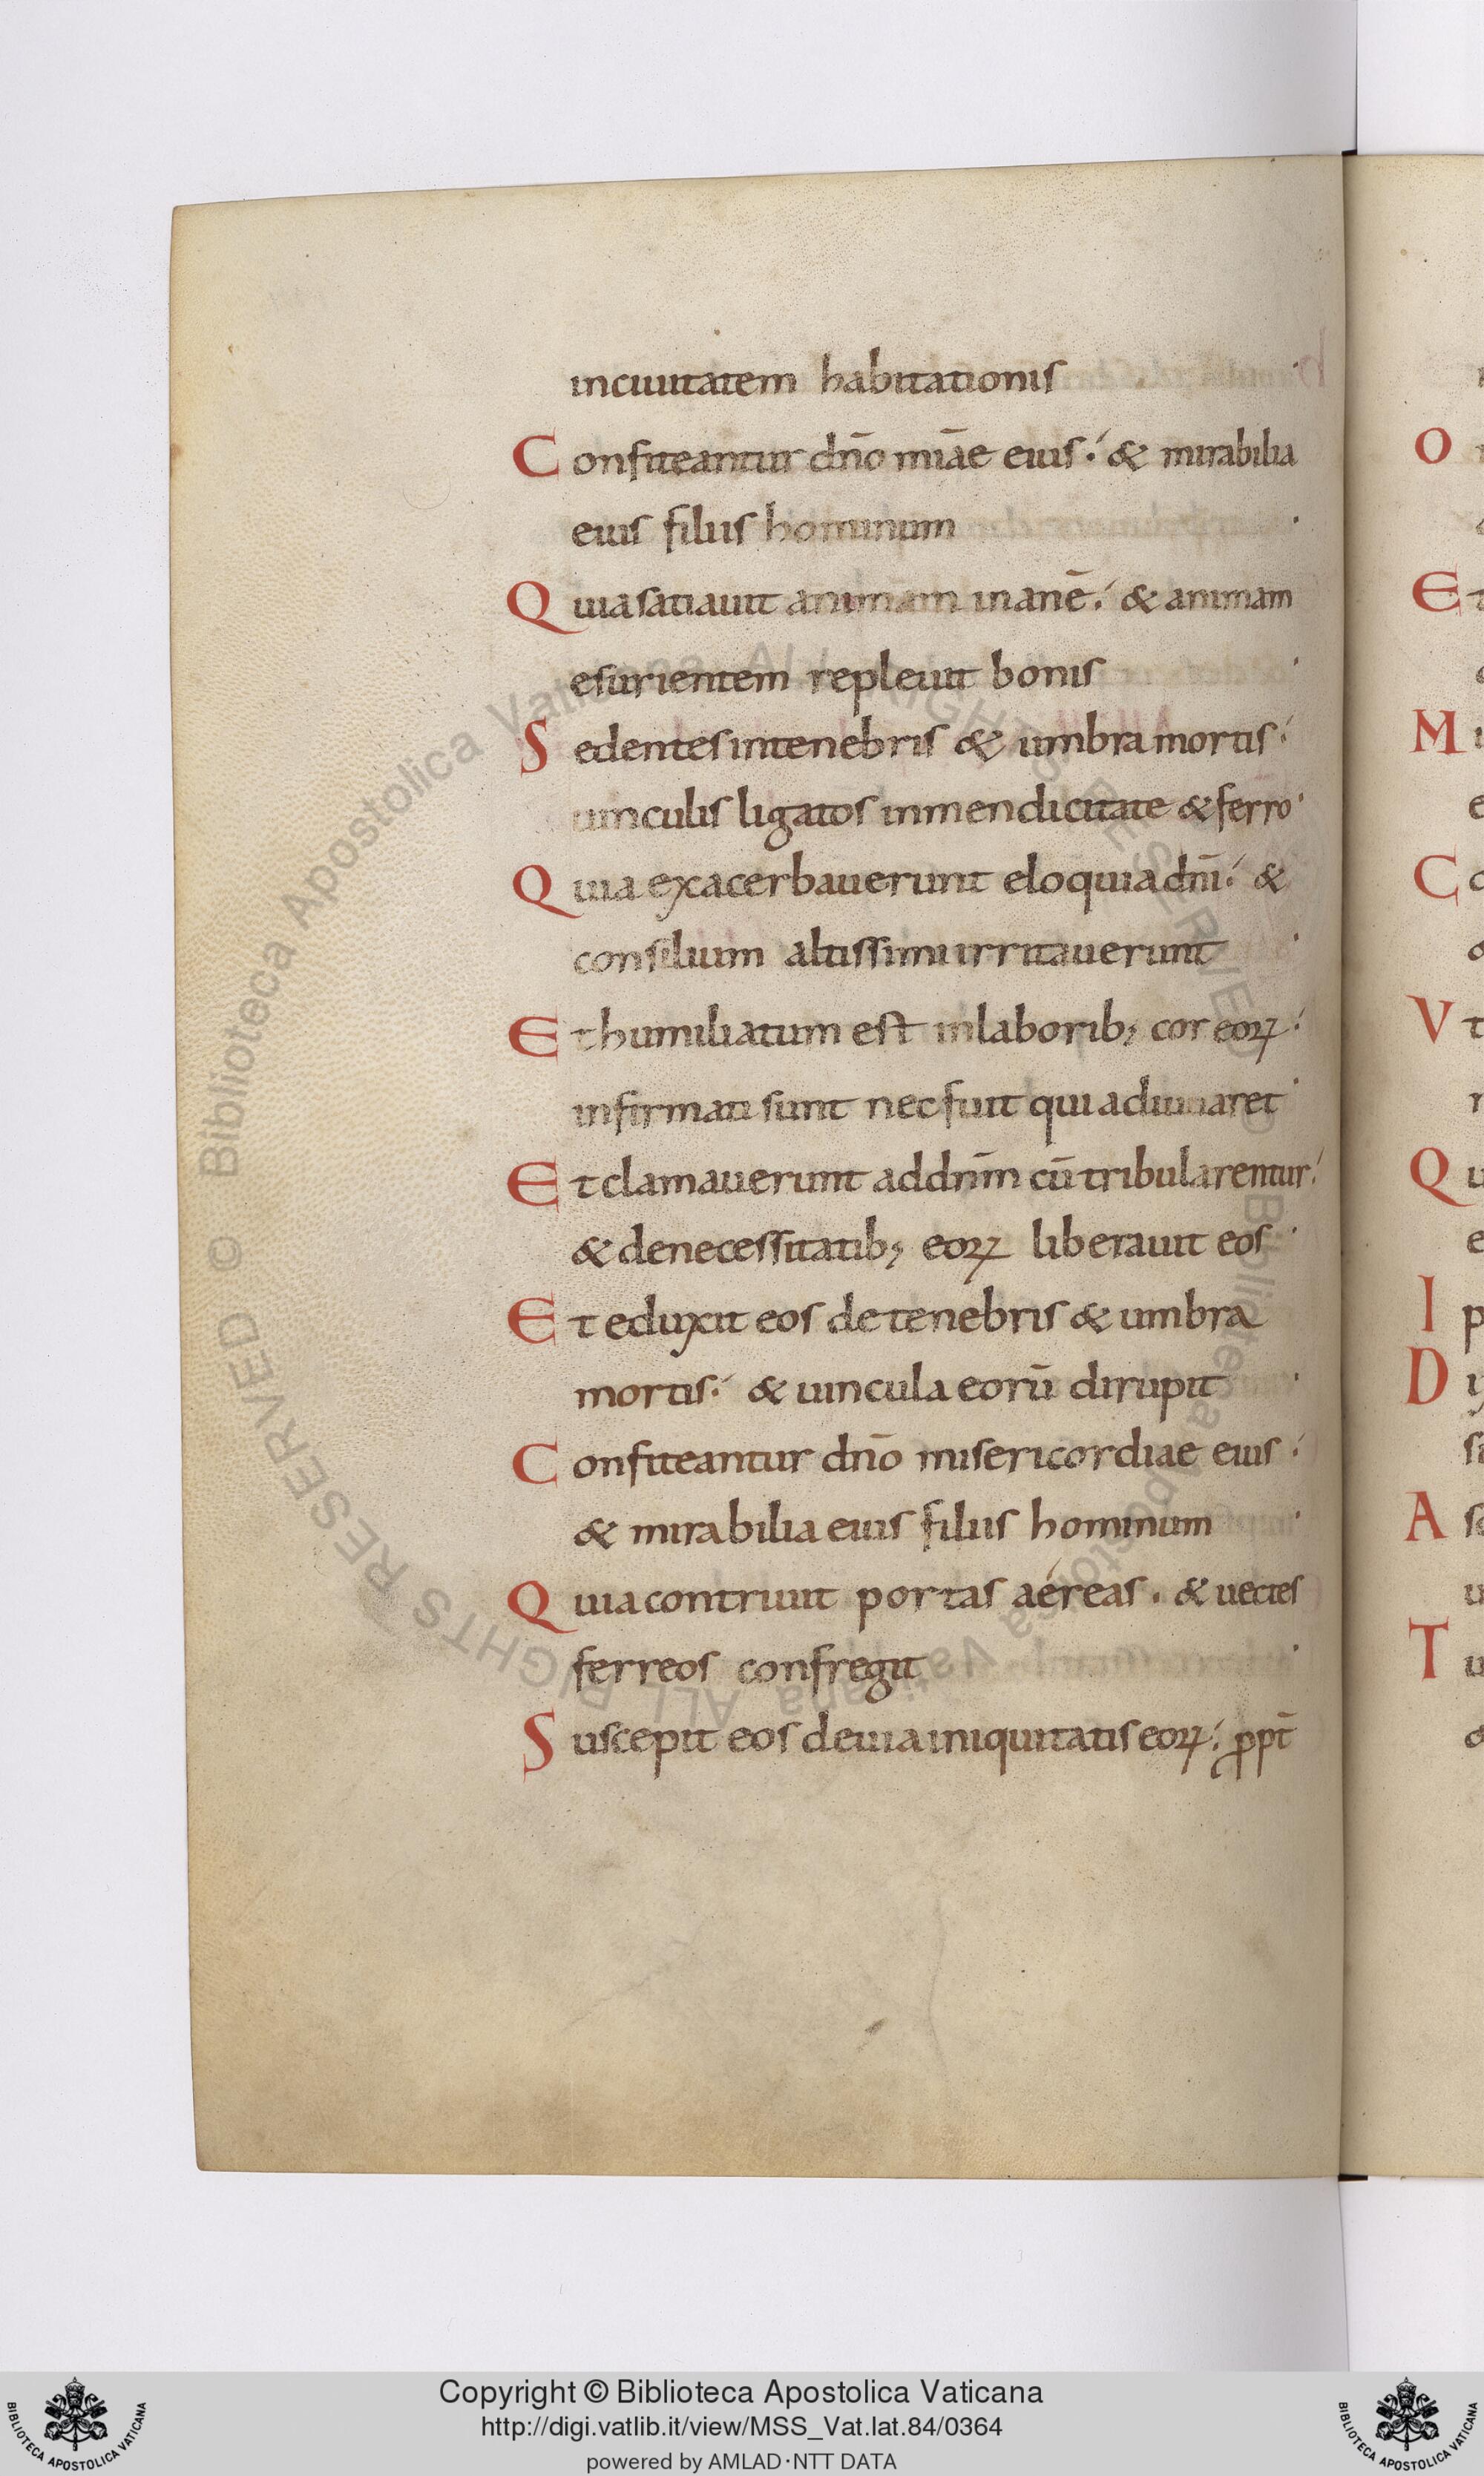 inciuitatem habitationis
Confiteantur dn̄o miāe eius·́ & mirabilia
eius filiis hominum ·
Quia satiauit animam inanē·́ & animam
esurientem repleuit bonis ·
Sedentes intenebris & umbra mortis·́
uinculis ligatos inmendicitate & ferro ·
Quia exacerbauerunt eloquia dn̄i·́ &
consilium altissimi irritauerunt ·
Et humiliatum est inlaborib; cor eoꝝ·́
infirmati sunt nec fuit qui adiuuaret ·
Et clamauerunt addn̄m cū tribularentur·́
& denecessitatib; eoꝝ liberauit eos ·
Et eduxit eos de tenebris & umbra
mortis·́ & uincula eorū dirupit ·
Confiteantur dn̄o misericordiae eius·́
& mirabilia eius filiis hominum ·
Quia contriuit portas aéreas · & uectes
ferreos confregit ·
Suscepit eos deuia iniquitatis eoꝝ·́ ꝓpt̄
O
E t
M
e
C
V t
Q u
e
I p
D
A
T u
Biblioteca Apostolica Vaticana ALL RIGHTS RESERVED © Biblioteca Apostolica Vaticana ALL RIGHTS RESERVED ©
Copyright © Biblioteca Apostolica Vaticana
http://digi.vatlib.it/view/MSS_Vat.lat.84/0364
powered by AMLAD·NTT DATA
BIBLIOTECA APOSTOLICA VATICANA
BIBLIOTECA APOSTOLICA VATICANA